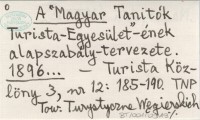 A "Magyar Tanitók
Turista-Egyesület"-ének
alapszabály-tervezete.
1896... — Turista Köz-
löny 3, nr 12: 185-190. TNP
Tow. Turystyczne Węgierskich